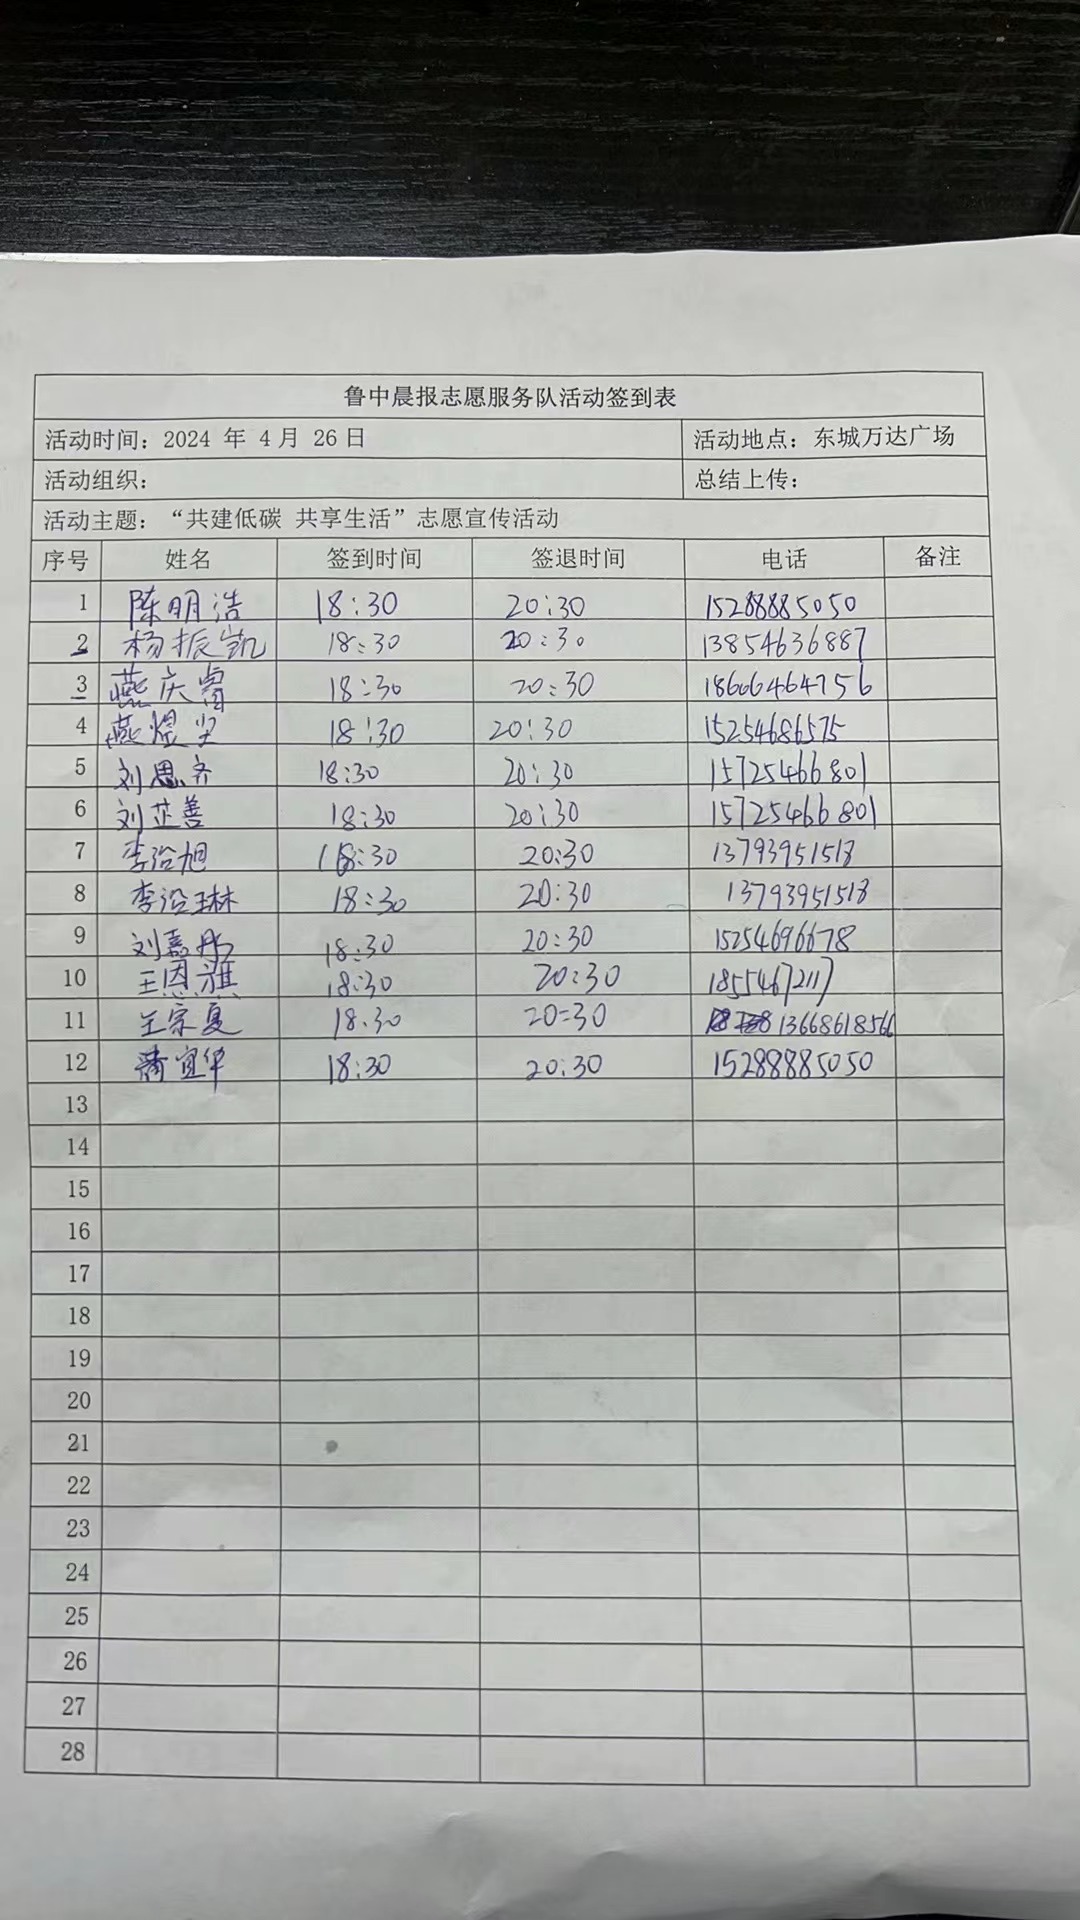 鲁中晨报志愿服务队活动签到表
活动时间：2024 年 4 月 26 日 活动地点：东城万达广场
活动组织： 总结上传：
活动主题：“共建低碳 共享生活”志愿宣传活动
序号 姓名 签到时间 签退时间 电话 备注
1 陈明浩 18:30 20:30 15288885050
2 杨振凯 18:30 20:30 13854636887
3 燕庆睿 18:30 20:30 18606464756
4 燕煜 18:30 20:30 15254686575
5 刘思齐 18:30 20:30 15725466801
6 刘芷善 18:30 20:30 15725466801
7 李 旭 18:30 20:30 13793951518
8 李 琳 18:30 20:30 13793951518
9 刘嘉彤 18:30 20:30 15254696678
10 王恩旗 18:30 20:30 18554672117
11 王宗夏 18.30 20=30 13668618566
12 宜华 18:30 20:30 15288885050
13
14
15
16
17
18
19
20
21
22
23
24
25
26
27
28